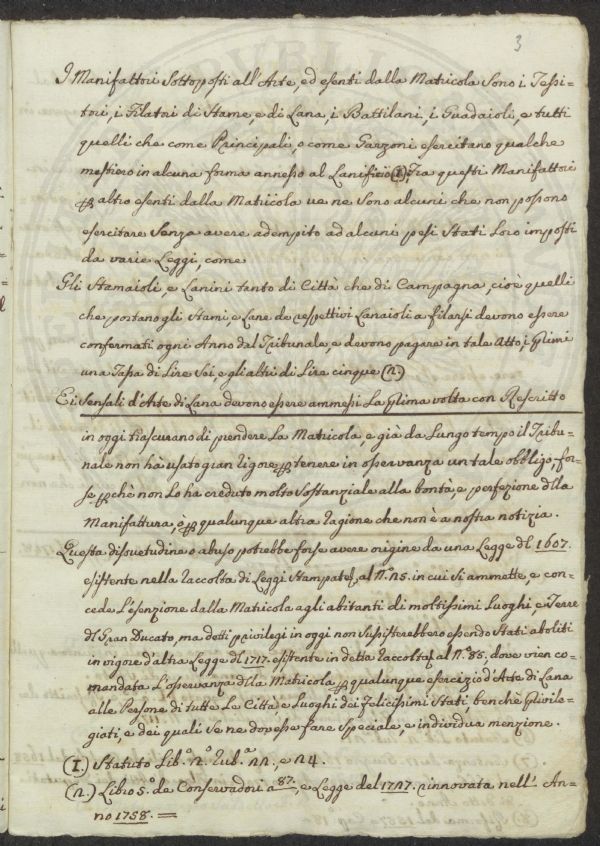 3
I Manifattori Sottoposti all'Arte, ed esenti dalla Matricola Sono i Tessi-
tori, i Filatori di Stame, e di Lana, i Battilani, i Guadaioli, e tutti
quelli che come Principali, o come Garzoni esercitano qualche
mestiero in alcuna forma annesso al Lanificio (1). Fra questi Manifattori
per altro esenti dalla Matricola ve ne Sono alcuni che non possono
esercitare Senza avere adempito ad alcuni pesi Stati Loro imposti
da varie Leggi, come
Gli Stamaioli, e Lanini tanto di Città che di Campagna, cioè quelli
che portano gli Stami, e Lane de respettivi Lanaioli a filarsi devono essere
confermati ogni Anno dal Tribunale, e devono pagare in tale Atto, i Primi
una Tassa di Lire Sei e gli altri di Lire cinque (2.)
E i Sensali d'Arte di Lana devono essere ammessi La Prima volta con Rescritto
in oggi trascurano di prendere La Matricola, e già da Lungo tempo il Tribu-
nale non hà usato gran rigore per tenere in osservanza un tale obbligo, for-
se perchè non Lo ha creduto molto Sostanziale alla bontà, e perfezione della
Manifattura, ò per qualunque altra ragione che non è a nostra notizia.
Questa disuetudine o abuso potrebbe forse avere origine da una Legge del 1607.
esistente nella raccolta di Leggi Stampate al N.º 25. in cui Si ammette, e con-
cede L'esenzione dalla Matricola agli abitanti di moltissimi Luoghi, e Terre
del Gran Ducato, ma detti privilegi in oggi non Sussisterebbero essendo Stati aboliti
in vigore d'altra Legge del 1717. esistente in detta raccolta al N.º 85, dove vien co-
mandata L'osservanza della Matricola per qualunque esercizio d'Arte di Lana
alle Persone di tutte Le Città, e Luoghi dei Felicissimi Stati, benche Privile-
giati, e dei quali Se ne dovesse fare Speciale, e individua menzione.
(1.) Statuto Lib.º 2.º Rub.ª 22., e 24.
(2.) Libro 5.º de Conservadori a 87., e Legge del 1727. rinnovata nell' An-
no 1758. =